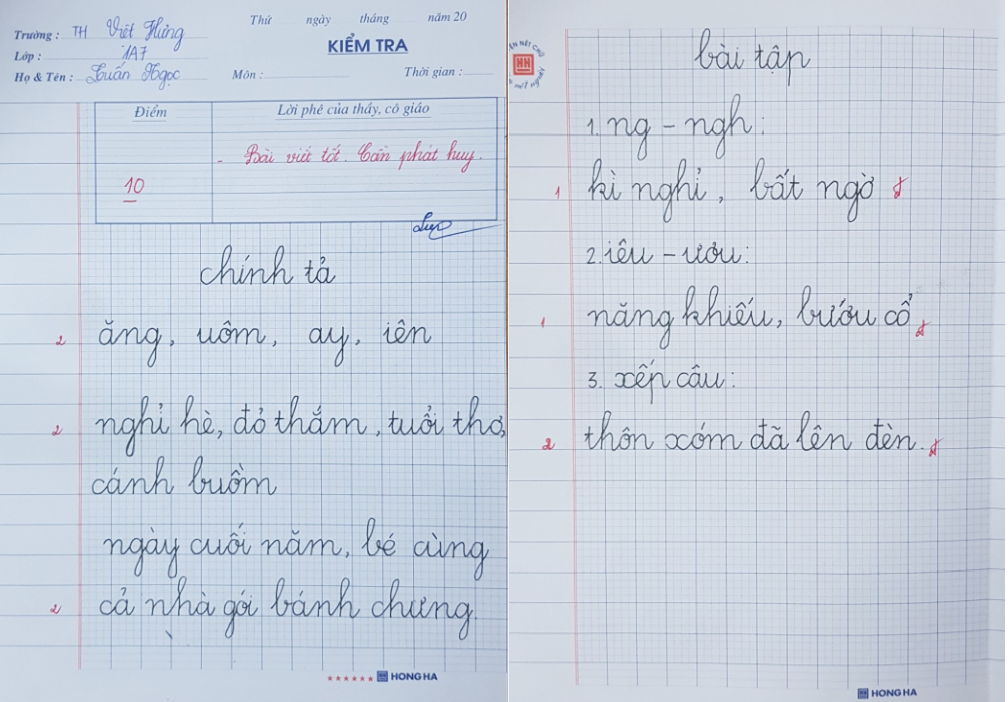 Thứ ngày tháng năm 20
Trường : TH Việt Hưng
KIỂM TRA
Lớp : 1A7
Họ & Tên : Tuấn Ngọc
Môn : Thời gian :
Điểm
Lời phê của thầy, cô giáo
- Bài viết tốt. Cần phát huy.
10
chính tả
2 ăng, uôm, ay, iên
2 nghỉ hè, đỏ thắm, tuổi thơ,
cánh buồm
ngày cuối năm, bé cùng
2 cả nhà gói bánh chưng.
HONG HA
bài tập
1. ng - ngh:
1 kì nghỉ, bất ngờ đ
2. iêu - ươu:
1 năng khiếu, bướu cổ đ
3. xếp câu:
2 thôn xóm đã lên đèn. đ
HONG HA